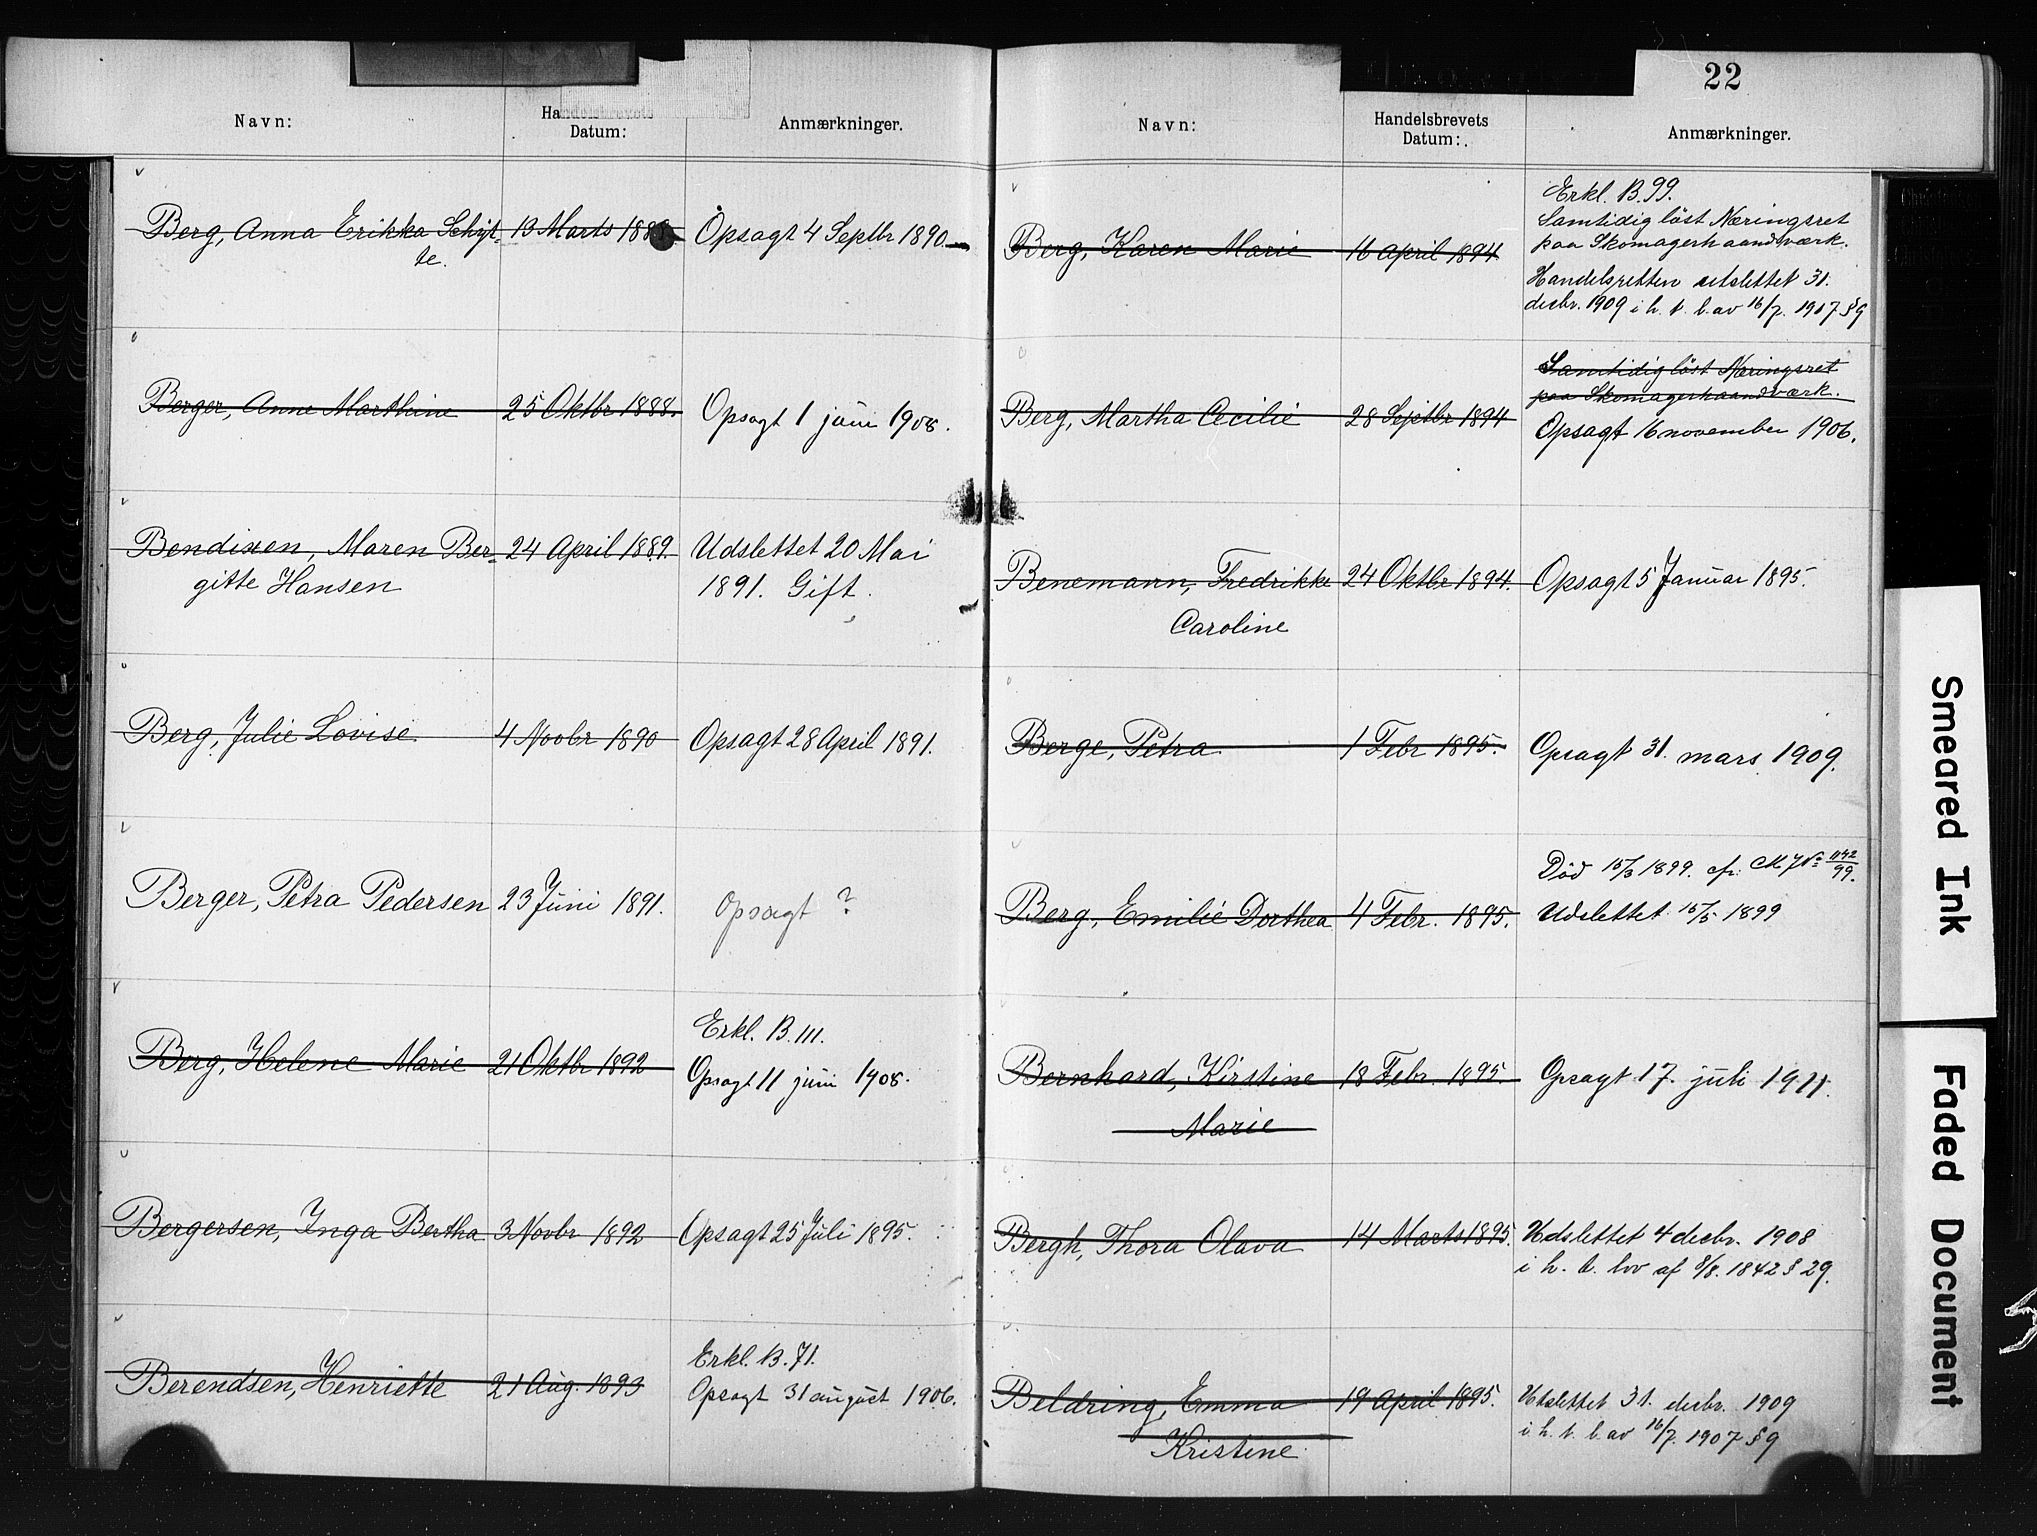 Navn:
Handelsbrevets
Datum:
Anmærkninger.
Berg, Anna Erikka Schyt-
te.
13 Marts 1888
Opsagt 4 Septbr 1890
Berger, Anne Marthine
25 Oktbr 1888.
Opsagt 1 juni 1908.
Bendixen, Maren Ber-
gitte Hansen
24 April 1889.
Udslettet 20 Mai
1891. Gift.
Berg, Julie Lovise.
4 Novbr 1890
Opsagt 28 April 1891.
Berger, Petra Pedersen
23 Juni 1891.
Opsagt ?
Berg, Helene Marie
21 Oktbr 1892
Erkl. B. 111.
Opsagt 11 juni 1908.
Bergersen, Inga Bertha
3 Novbr 1892
Opsagt 25 Juli 1895.
Berendsen, Henriette
21 Aug. 1893
Erkl. B. 71.
Opsagt 31 august 1906.
22
Navn:
Handelsbrevets
Datum:
Anmærkninger.
Berg, Karen Marie
16 April 1894
Erkl. B. 99.
Samtidig löst Næringsret
paa Skomagerhaandværk.
Handelsretten utslettet 31.
decbr. 1909 i h. t. l. av 16/7. 1907 § 9
Berg, Martha Cecilie
28 Septbr 1894
Samtidig löst Næringsret
paa Skomagerhaandværk.
Opsagt 16 november 1906.
Benemann, Fredrikke
Caroline
24 Oktbr 1894.
Opsagt 5 Januar 1895.
Berge, Petra
1 Febr 1895.
Opsagt 31. mars 1909.
Berg, Emilie Dorthea
4 Febr. 1895.
Död 15/3 1899. cfr. M J No 1142/99.
Udslettet 15/5 1899
Bernhard, Kirstine
Marie
18 Febr. 1895.
Opsagt 17. juli 1911.
Bergh, Thora Olava
14 Marts 1895.
Udslettet 4 decbr. 1908
i h. t. lov af 8/8. 1842 § 29.
Beldring, Emma
Kristine
19 April 1895.
Utslettet 31. decbr. 1909
i h. t. l. av 16/7. 1907 § 9
Smeared Ink
Faded Document